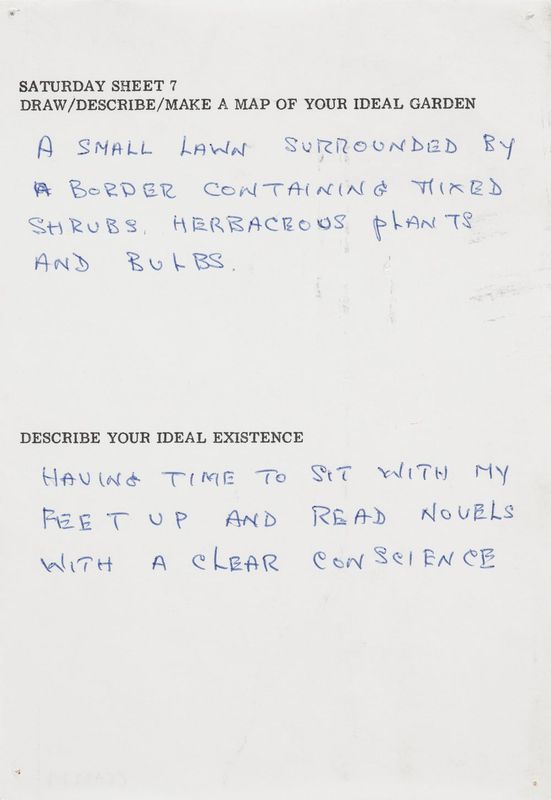 SATURDAY SHEET 7
DRAW/DESCRIBE/MAKE A MAP OF YOUR IDEAL GARDEN
A SMALL LAWN SURROUNDED BY
A BORDER CONTAINING MIXED
SHRUBS. HERBACEOUS PLANTS
AND BULBS.
DESCRIBE YOUR IDEAL EXISTENCE
HAVING TIME TO SIT WITH MY
FEET UP AND READ NOVELS
WITH A CLEAR CONSCIENCE